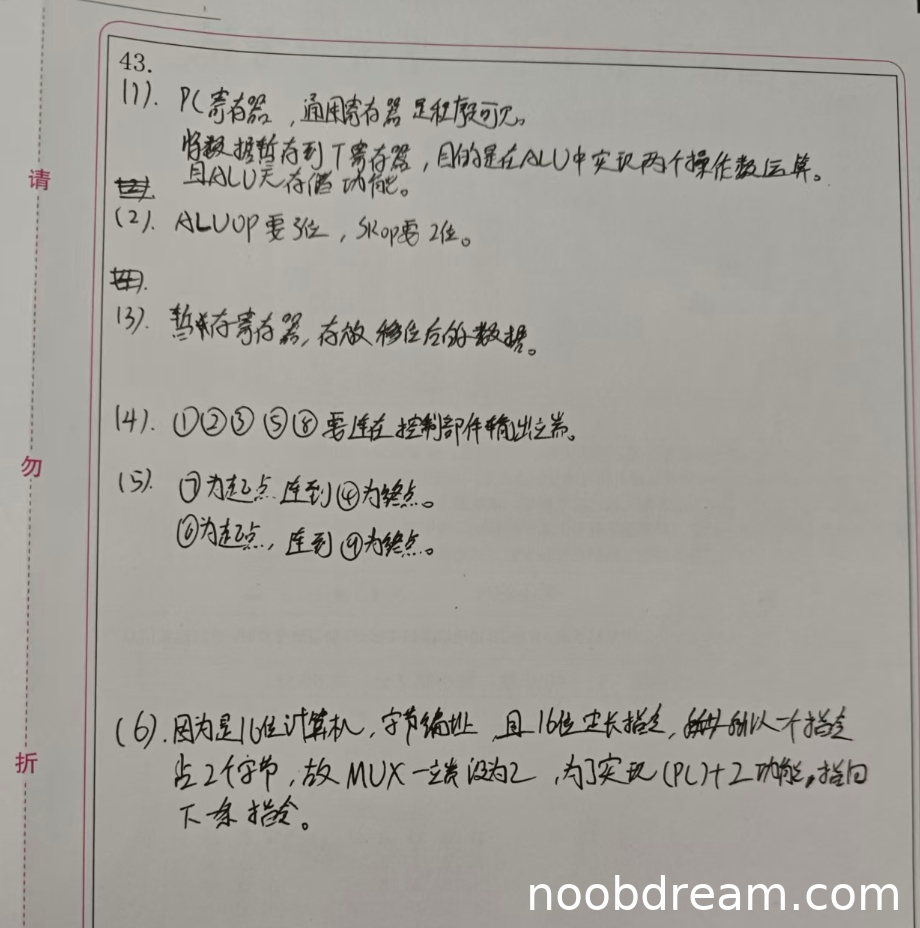 43.
(1). PC寄存器，通用寄存器是程序可见。
将数据暂存到T寄存器，目的是在ALU中实现两个操作数运算。
且ALU无存储功能。
请
(2). ALUOP要3位，SRop要2位。
(3). 暂存寄存器，存放移位后的数据。
(4). ①②③ ⑤⑧要连在控制部件输出端。
勿
(5). ⑦为起点 连到④为终点。
⑥为起点，连到⑨为终点。
(6). 因为是16位计算机，字节编址，且16位定长指令，所以一个指令
占2个字节，故MUX一端设为2，为了实现(PC)+2功能，指向
折
下条指令。
noobdream.com